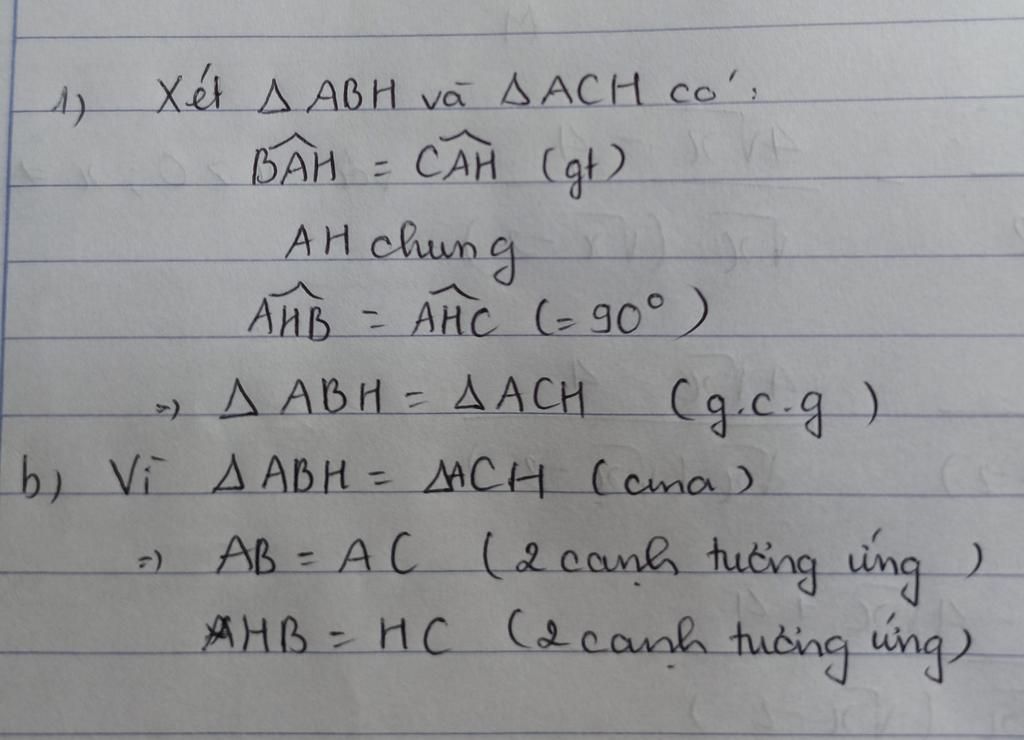 1) Xét Δ ABH và Δ ACH có:
B̂AH = ĈAH (gt)
AH chung
ÂHB = ÂHC (= 90°)
=> Δ ABH = Δ ACH (g.c.g)
b) Vì Δ ABH = ΔACH (cma)
=> AB = AC (2 cạnh tương ứng)
HB = HC (2 cạnh tương ứng)